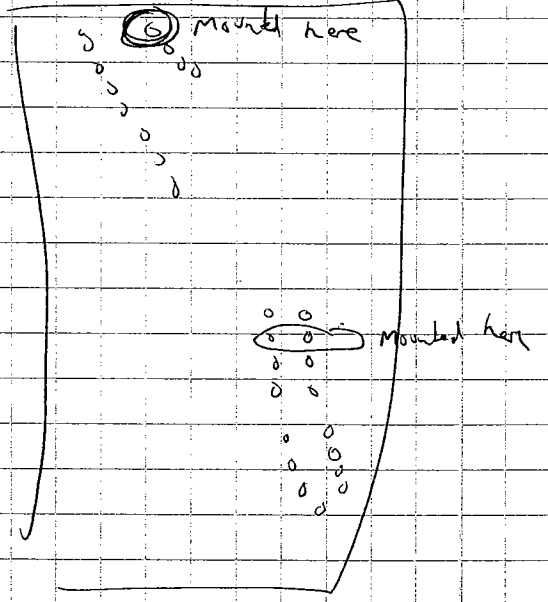 Mounted here
Mounted here